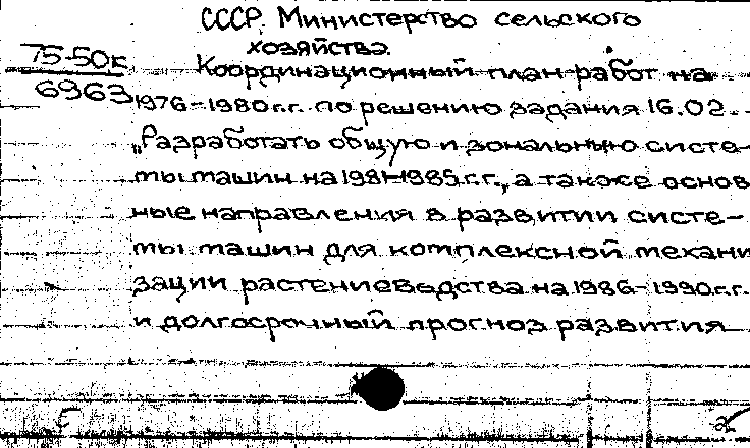 СССР. Министерство сельского
хозяйства.
75-50к
6963
Координационный план работ на
1976-1980г.г. по решению задания 16.02.
"Разработать общую и зональную систе-
мы машин на 1981-1985г.г., а также основ
ные направления в развитии систе-
мы машин для комплексной механи
зации растениеводства на 1986-1990г.г.
и долгосрочный прогноз развития
2